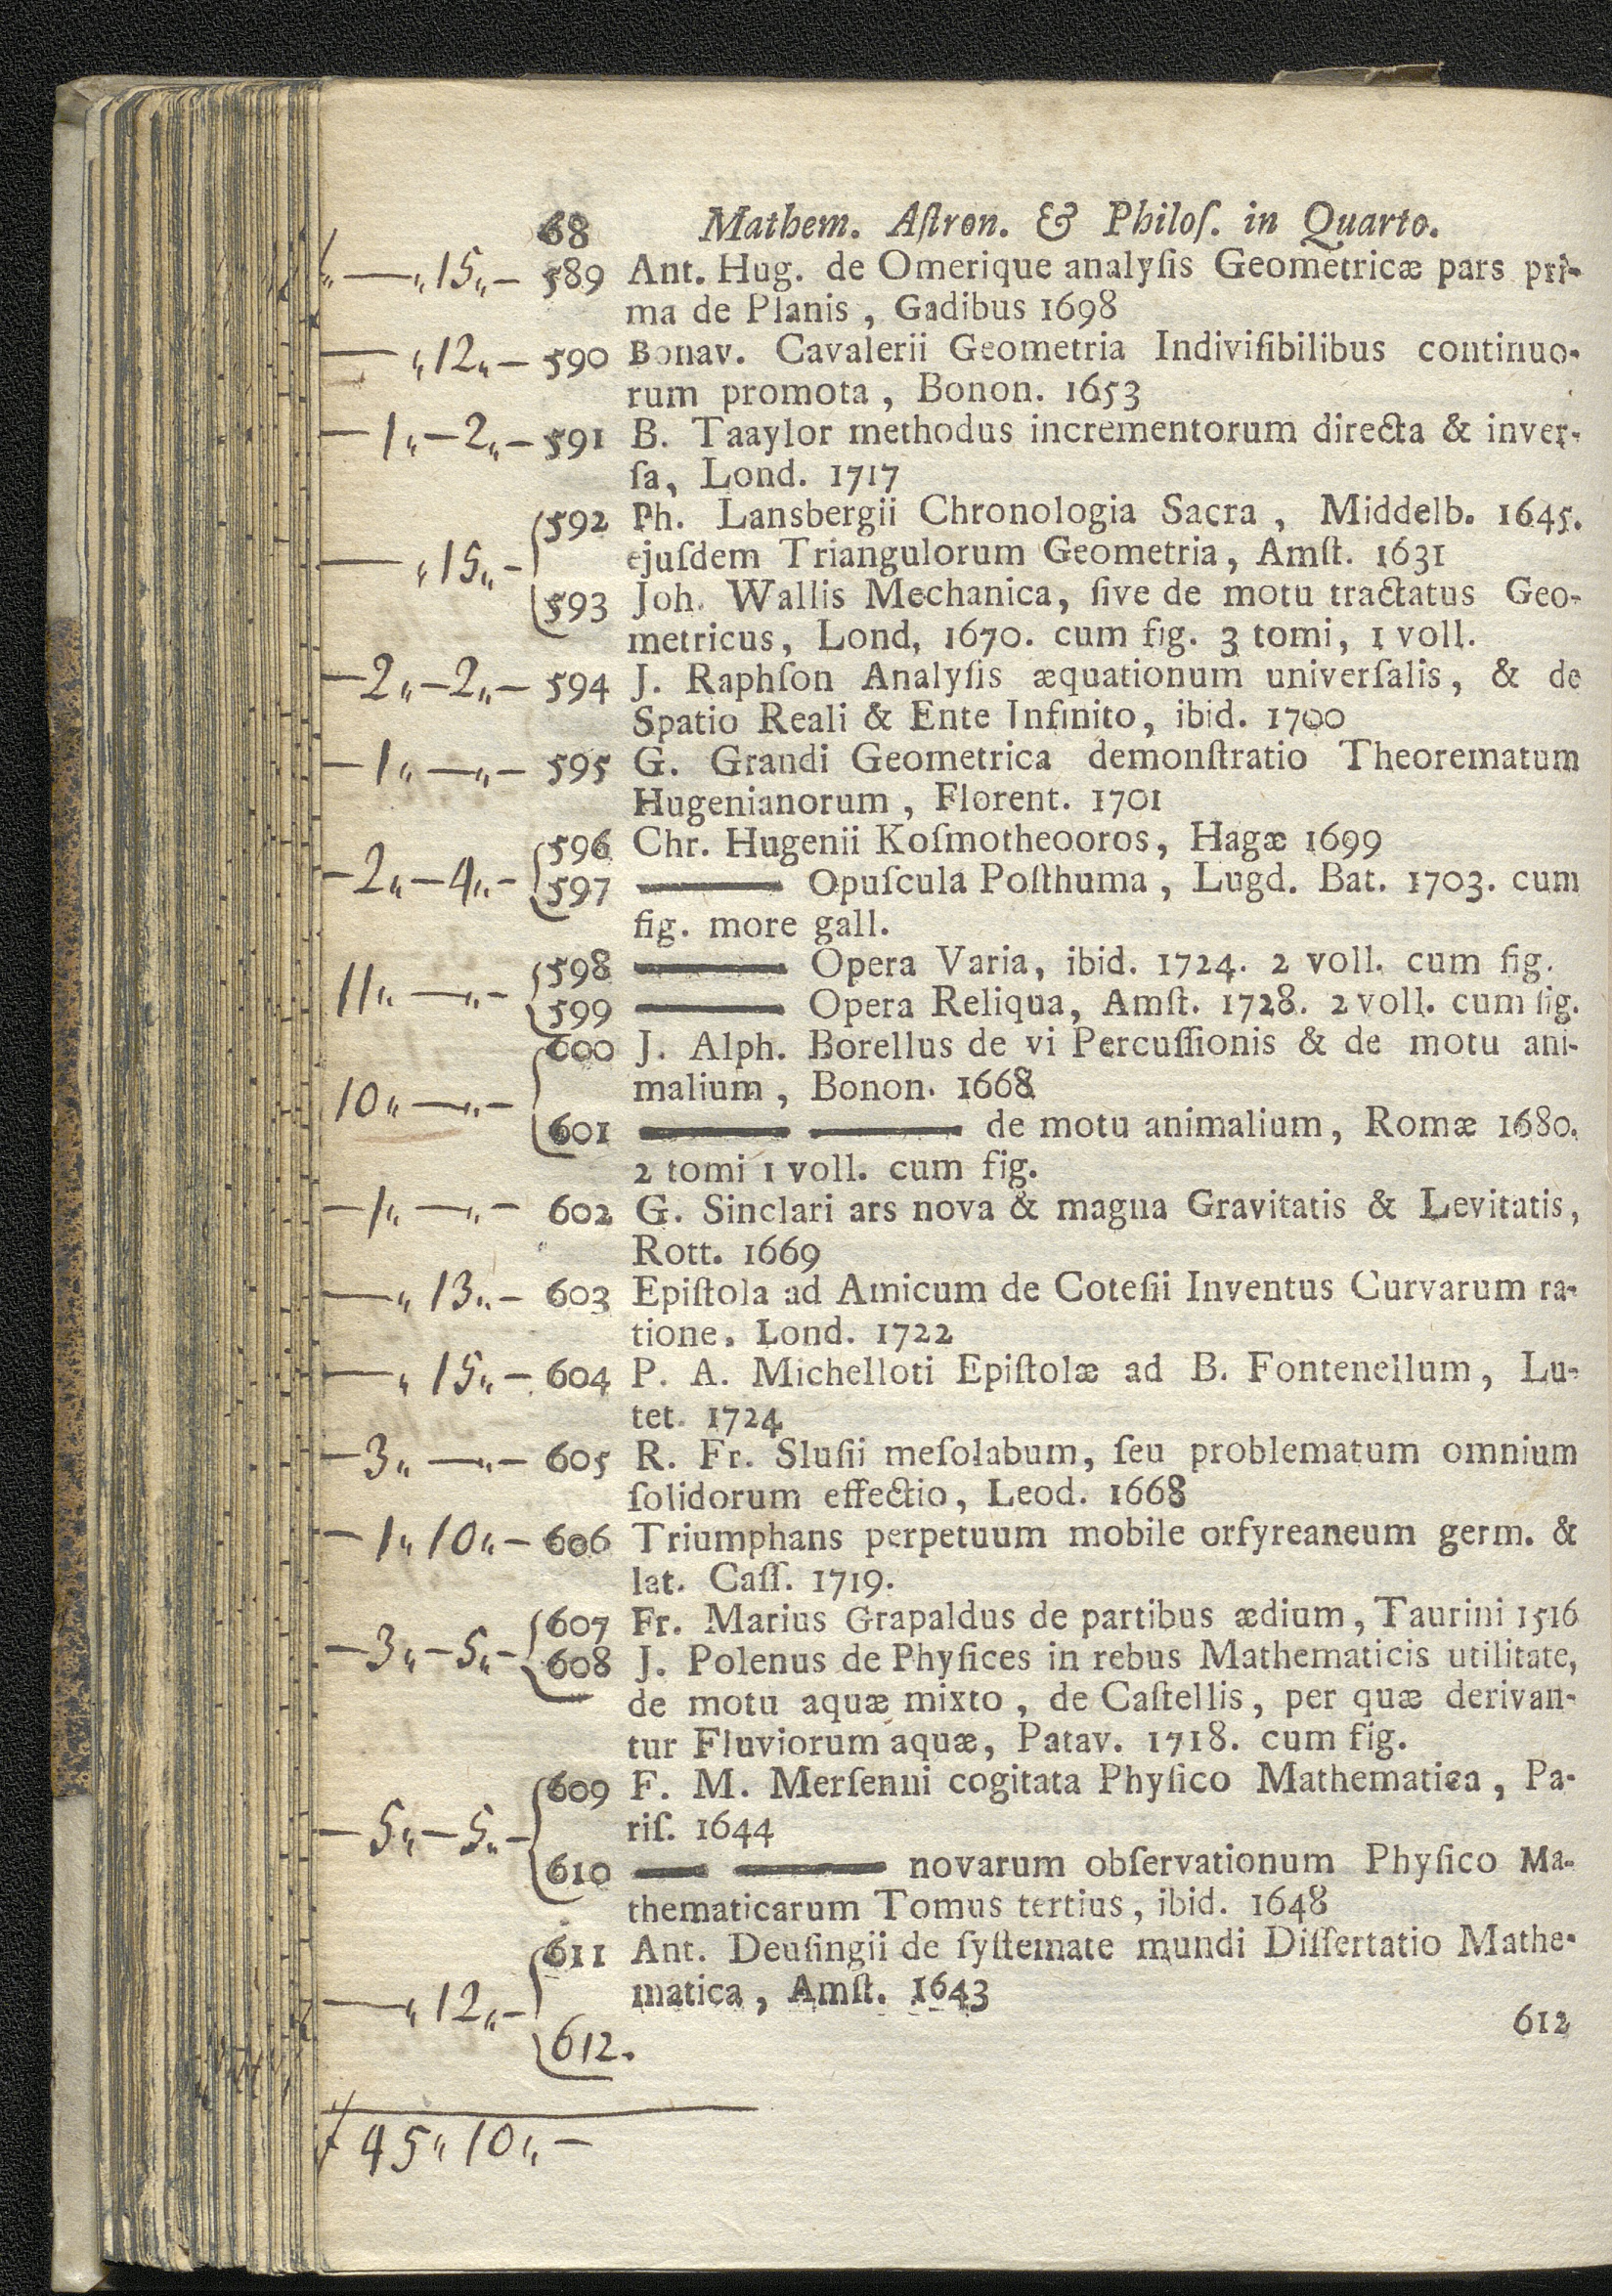 68 Mathem. Aſtron. & Philoſ. in Quarto.
„ — „ 15 „ — 589 Ant. Hug. de Omerique analyſis Geometricæ pars pri-
ma de Planis , Gadibus 1698
— „ 12 „ — 590 Bonav. Cavalerii Geometria Indiviſibilibus continuo-
rum promota , Bonon. 1653
— 1 „ — 2 „ — 591 B. Taaylor methodus incrementorum directa & inver-
ſa, Lond. 1717
592 Ph. Lansbergii Chronologia Sacra , Middelb. 1645.
— „ 15 „ — ejuſdem Triangulorum Geometria, Amſt. 1631
593 Joh. Wallis Mechanica, ſive de motu tractatus Geo-
metricus, Lond, 1670. cum fig. 3 tomi, 1 voll.
— 2 „ — 2 „ — 594 J. Raphſon Analyſis æquationum univerſalis, & de
Spatio Reali & Ente Infinito, ibid. 1700
— 1 „ — „ — 595 G. Grandi Geometrica demonſtratio Theorematum
Hugenianorum , Florent. 1701
596 Chr. Hugenii Koſmotheooros, Hagæ 1699
— 2 „ — 4 „ — 597 ——— Opuſcula Poſthuma , Lugd. Bat. 1703. cum
fig. more gall.
598 ——— Opera Varia, ibid. 1724. 2 voll. cum fig.
11 „ — „ — 599 ——— Opera Reliqua, Amſt. 1728. 2 voll. cum fig.
600 J. Alph. Borellus de vi Percuſſionis & de motu ani-
10 „ — „ — malium , Bonon. 1668
601 ——— ——— de motu animalium, Romæ 1680.
2 tomi 1 voll. cum fig.
— 1 „ — „ — 602 G. Sinclari ars nova & magna Gravitatis & Levitatis,
Rott. 1669
— „ 13 „ — 603 Epiſtola ad Amicum de Coteſii Inventus Curvarum ra-
tione. Lond. 1722
— „ 15 „ — 604 P. A. Michelloti Epiſtolæ ad B. Fontenellum, Lu-
tet. 1724
— 3 „ — „ — 605 R. Fr. Sluſii meſolabum, ſeu problematum omnium
ſolidorum effectio, Leod. 1668
— 1 „ 10 „ — 606 Triumphans perpetuum mobile orfyreaneum germ. &
lat. Caſſ. 1719.
607 Fr. Marius Grapaldus de partibus ædium, Taurini 1516
— 3 „ — 5 „ — 608 J. Polenus de Phyſices in rebus Mathematicis utilitate,
de motu aquæ mixto , de Caſtellis, per quæ derivan-
tur Fluviorum aquæ, Patav. 1718. cum fig.
609 F. M. Merſenni cogitata Phyſico Mathematica, Pa-
— 5 „ — 5 „ — riſ. 1644
610 —— ——— novarum obſervationum Phyſico Ma-
thematicarum Tomus tertius, ibid. 1648
611 Ant. Deuſingii de ſyſtemate mundi Diſſertatio Mathe-
— „ 12 „ — matica, Amſt. 1643
612
612.
ƒ 45 „ 10 „ —